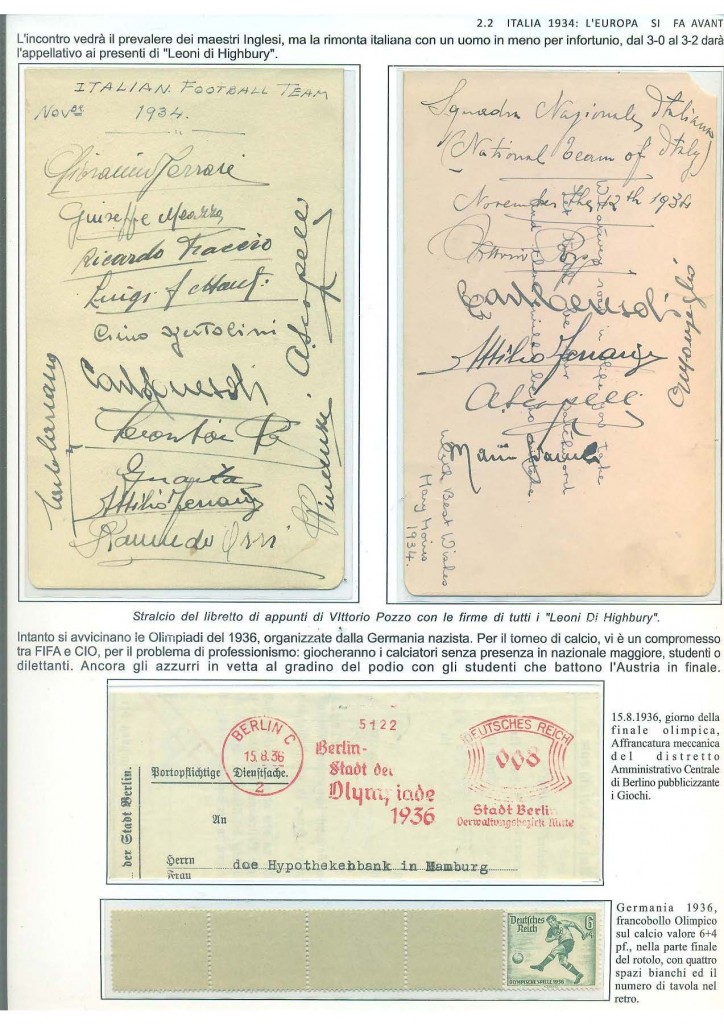 2.2 ITALIA 1934: L'EUROPA SI FA AVANT
L'incontro vedrà il prevalere dei maestri Inglesi, ma la rimonta italiana con un uomo in meno per infortunio, dal 3-0 al 3-2 darà
l'appellativo ai presenti di "Leoni di Highbury".
ITALIAN FOOTBALL TEAM
Nov 1934.
Giovanni Ferrari
Giuseppe Meazza
Ricardo Faccio
Luigi
Gino Bertolini
Attilio Ferraris
Raimundo Orsi
A Scopelli
Squadra Nazionale Italiana
(National team of Italy)
November the 12th 1934
Vittorio Pozzo
Attilio Ferraris
A Scopelli
With Best Wishes
Mary
1934.
Stralcio del libretto di appunti di VIttorio Pozzo con le firme di tutti i "Leoni Di Highbury".
Intanto si avvicinano le Olimpiadi del 1936, organizzate dalla Germania nazista. Per il torneo di calcio, vi è un compromesso
tra FIFA e CIO, per il problema di professionismo: giocheranno i calciatori senza presenza in nazionale maggiore, studenti o
dilettanti. Ancora gli azzurri in vetta al gradino del podio con gli studenti che battono l'Austria in finale.
BERLIN C
15.8.36
2
5122
Berlin-
Stadt der
Olympiade
1936
DEUTSCHES REICH
008
Stadt Berlin
Verwaltungsbezirk Mitte
Portopflichtige Dienstsache.
der Stadt Berlin.
An
Herrn
Frau
doe Hypothekenbank in Hamburg
15.8.1936, giorno della
finale olimpica,
Affrancatura meccanica
del distretto
Amministrativo Centrale
di Berlino pubblicizzante
i Giochi.
Deutsches
Reich
6+4
OLYMPISCHE SPIELE 1936
Germania 1936,
francobollo Olimpico
sul calcio valore 6+4
pf., nella parte finale
del rotolo, con quattro
spazi bianchi ed il
numero di tavola nel
retro.